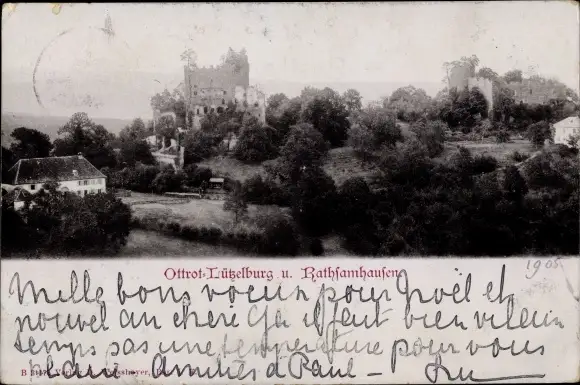 Ottrot-Lützelburg u. Rathsamhausen
1905
Mille bons voeux pour Noël et
nouvel an chérie ça il fait bien vilain
temps pas une température pour vous
Amitiés à Paul —